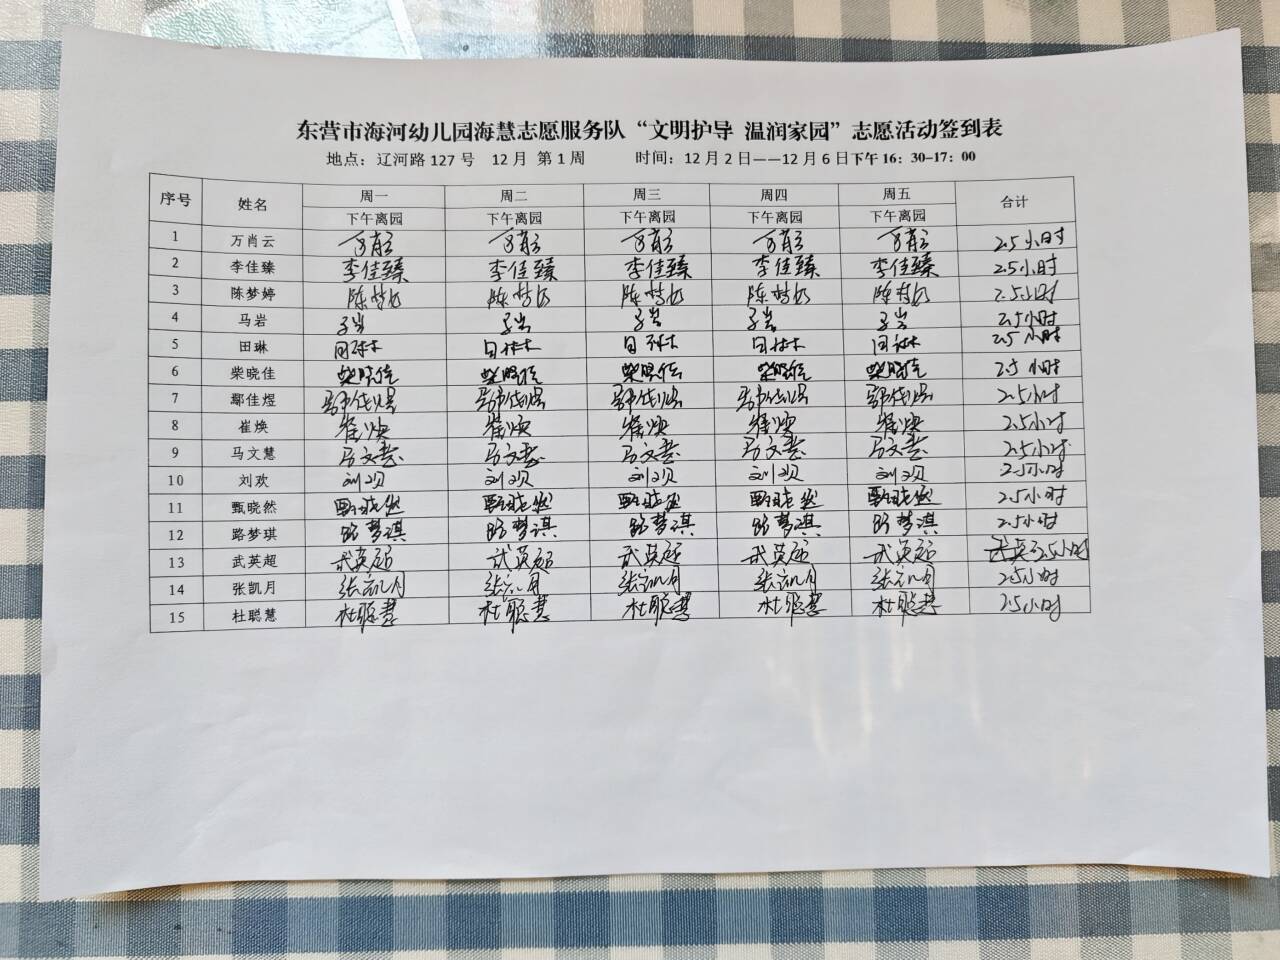 东营市海河幼儿园海慧志愿服务队“文明护导 温润家园”志愿活动签到表
地点：辽河路 127 号 12 月 第 1 周 时间：12 月 2 日——12 月 6 日下午 16：30-17：00
序号 姓名 周一 周二 周三 周四 周五 合计
下午离园 下午离园 下午离园 下午离园 下午离园
1 万肖云 万肖云 万肖云 万肖云 万肖云 万肖云 2.5小时
2 李佳臻 李佳臻 李佳臻 李佳臻 李佳臻 李佳臻 2.5小时
3 陈梦婷 陈梦婷 陈梦婷 陈梦婷 陈梦婷 陈梦婷 2.5小时
4 马岩 马岩 马岩 马岩 马岩 马岩 2.5小时
5 田琳 田琳 田琳 田琳 田琳 田琳 2.5小时
6 柴晓佳 柴晓佳 柴晓佳 柴晓佳 柴晓佳 柴晓佳 2.5小时
7 鄢佳煜 鄢佳煜 鄢佳煜 鄢佳煜 鄢佳煜 鄢佳煜 2.5小时
8 崔焕 崔焕 崔焕 崔焕 崔焕 崔焕 2.5小时
9 马文慧 马文慧 马文慧 马文慧 马文慧 马文慧 2.5小时
10 刘欢 刘欢 刘欢 刘欢 刘欢 刘欢 2.5小时
11 甄晓然 甄晓然 甄晓然 甄晓然 甄晓然 甄晓然 2.5小时
12 路梦琪 路梦琪 路梦琪 路梦琪 路梦琪 路梦琪 2.5小时
13 武英超 武英超 武英超 武英超 武英超 武英超 2.5小时
14 张凯月 张凯月 张凯月 张凯月 张凯月 张凯月 2.5小时
15 杜聪慧 杜聪慧 杜聪慧 杜聪慧 杜聪慧 杜聪慧 2.5小时